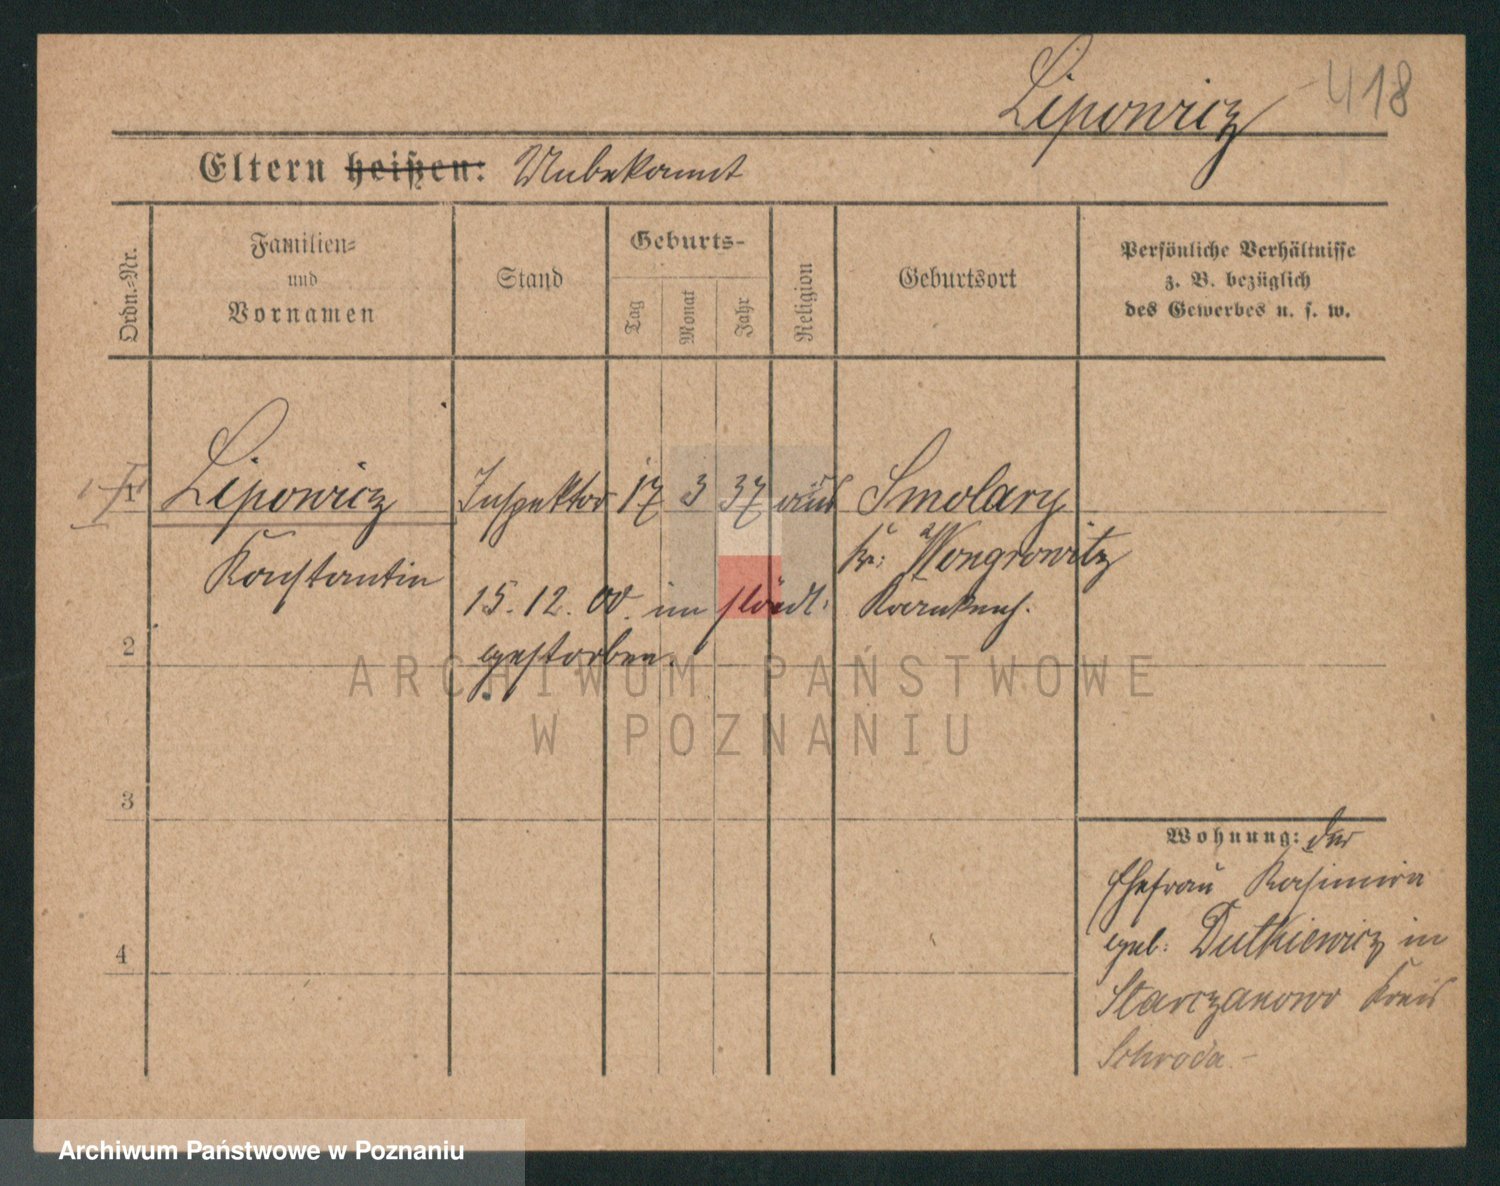 Lipowicz
418
Eltern heißen: Unbekannt
Ordn.-Nr.
Familien-
und
Vornamen
Stand
Geburts-
Tag
Monat
Jahr
Religion
Geburtsort
Persönliche Verhältnisse
z. B. bezüglich
des Gewerbes u. s. w.
1 Lipowicz Inspektor 17 3 37 aus Smolary
Konstantin
Kr: Wongrowitz
15. 12. 00. im städt: Krankenh.
gestorben.
2
3
4
Wohnung: der
Ehefrau Kasimira
geb: Dutkiewicz in
Starczanowo Kreis
Schroda.-
ARCHIWUM PAŃSTWOWE
W POZNANIU
Archiwum Państwowe w Poznaniu